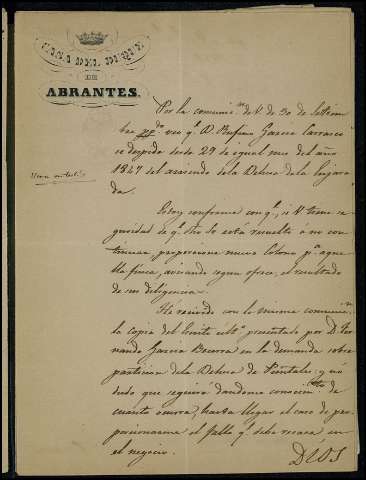 CASA DEL DUQUE
DE
ABRANTES.
Por la comunic.ⁿ de V. de 30 de Setiem
bre pp.do veo q.e D. Rufino Garcia Carrasco
se despide desde 29 de igual mes del año
1847 del arriendo de la Dehesa de la
da.
Estoy conforme con q.e, si V. tiene se
guridad de q.e Sor. está resuelto a no con
tinuar, proporcione nuevo Colono p.a aque
lla finca, avisando segun ofrece, el resultado
de su diligencia.
Hé recivido con la misma comunic.n
la copia del Escrito presentado por D. Fer
nando Garcia Becerra en la demanda sobre
particion de la Dehesa de Pintales; y nó
dudo que seguirá dandome conocim.to de
cuanto ocurra, hasta llegar el caso de pro
porcionarme el fallo q.e deba recaer en
el negocio.